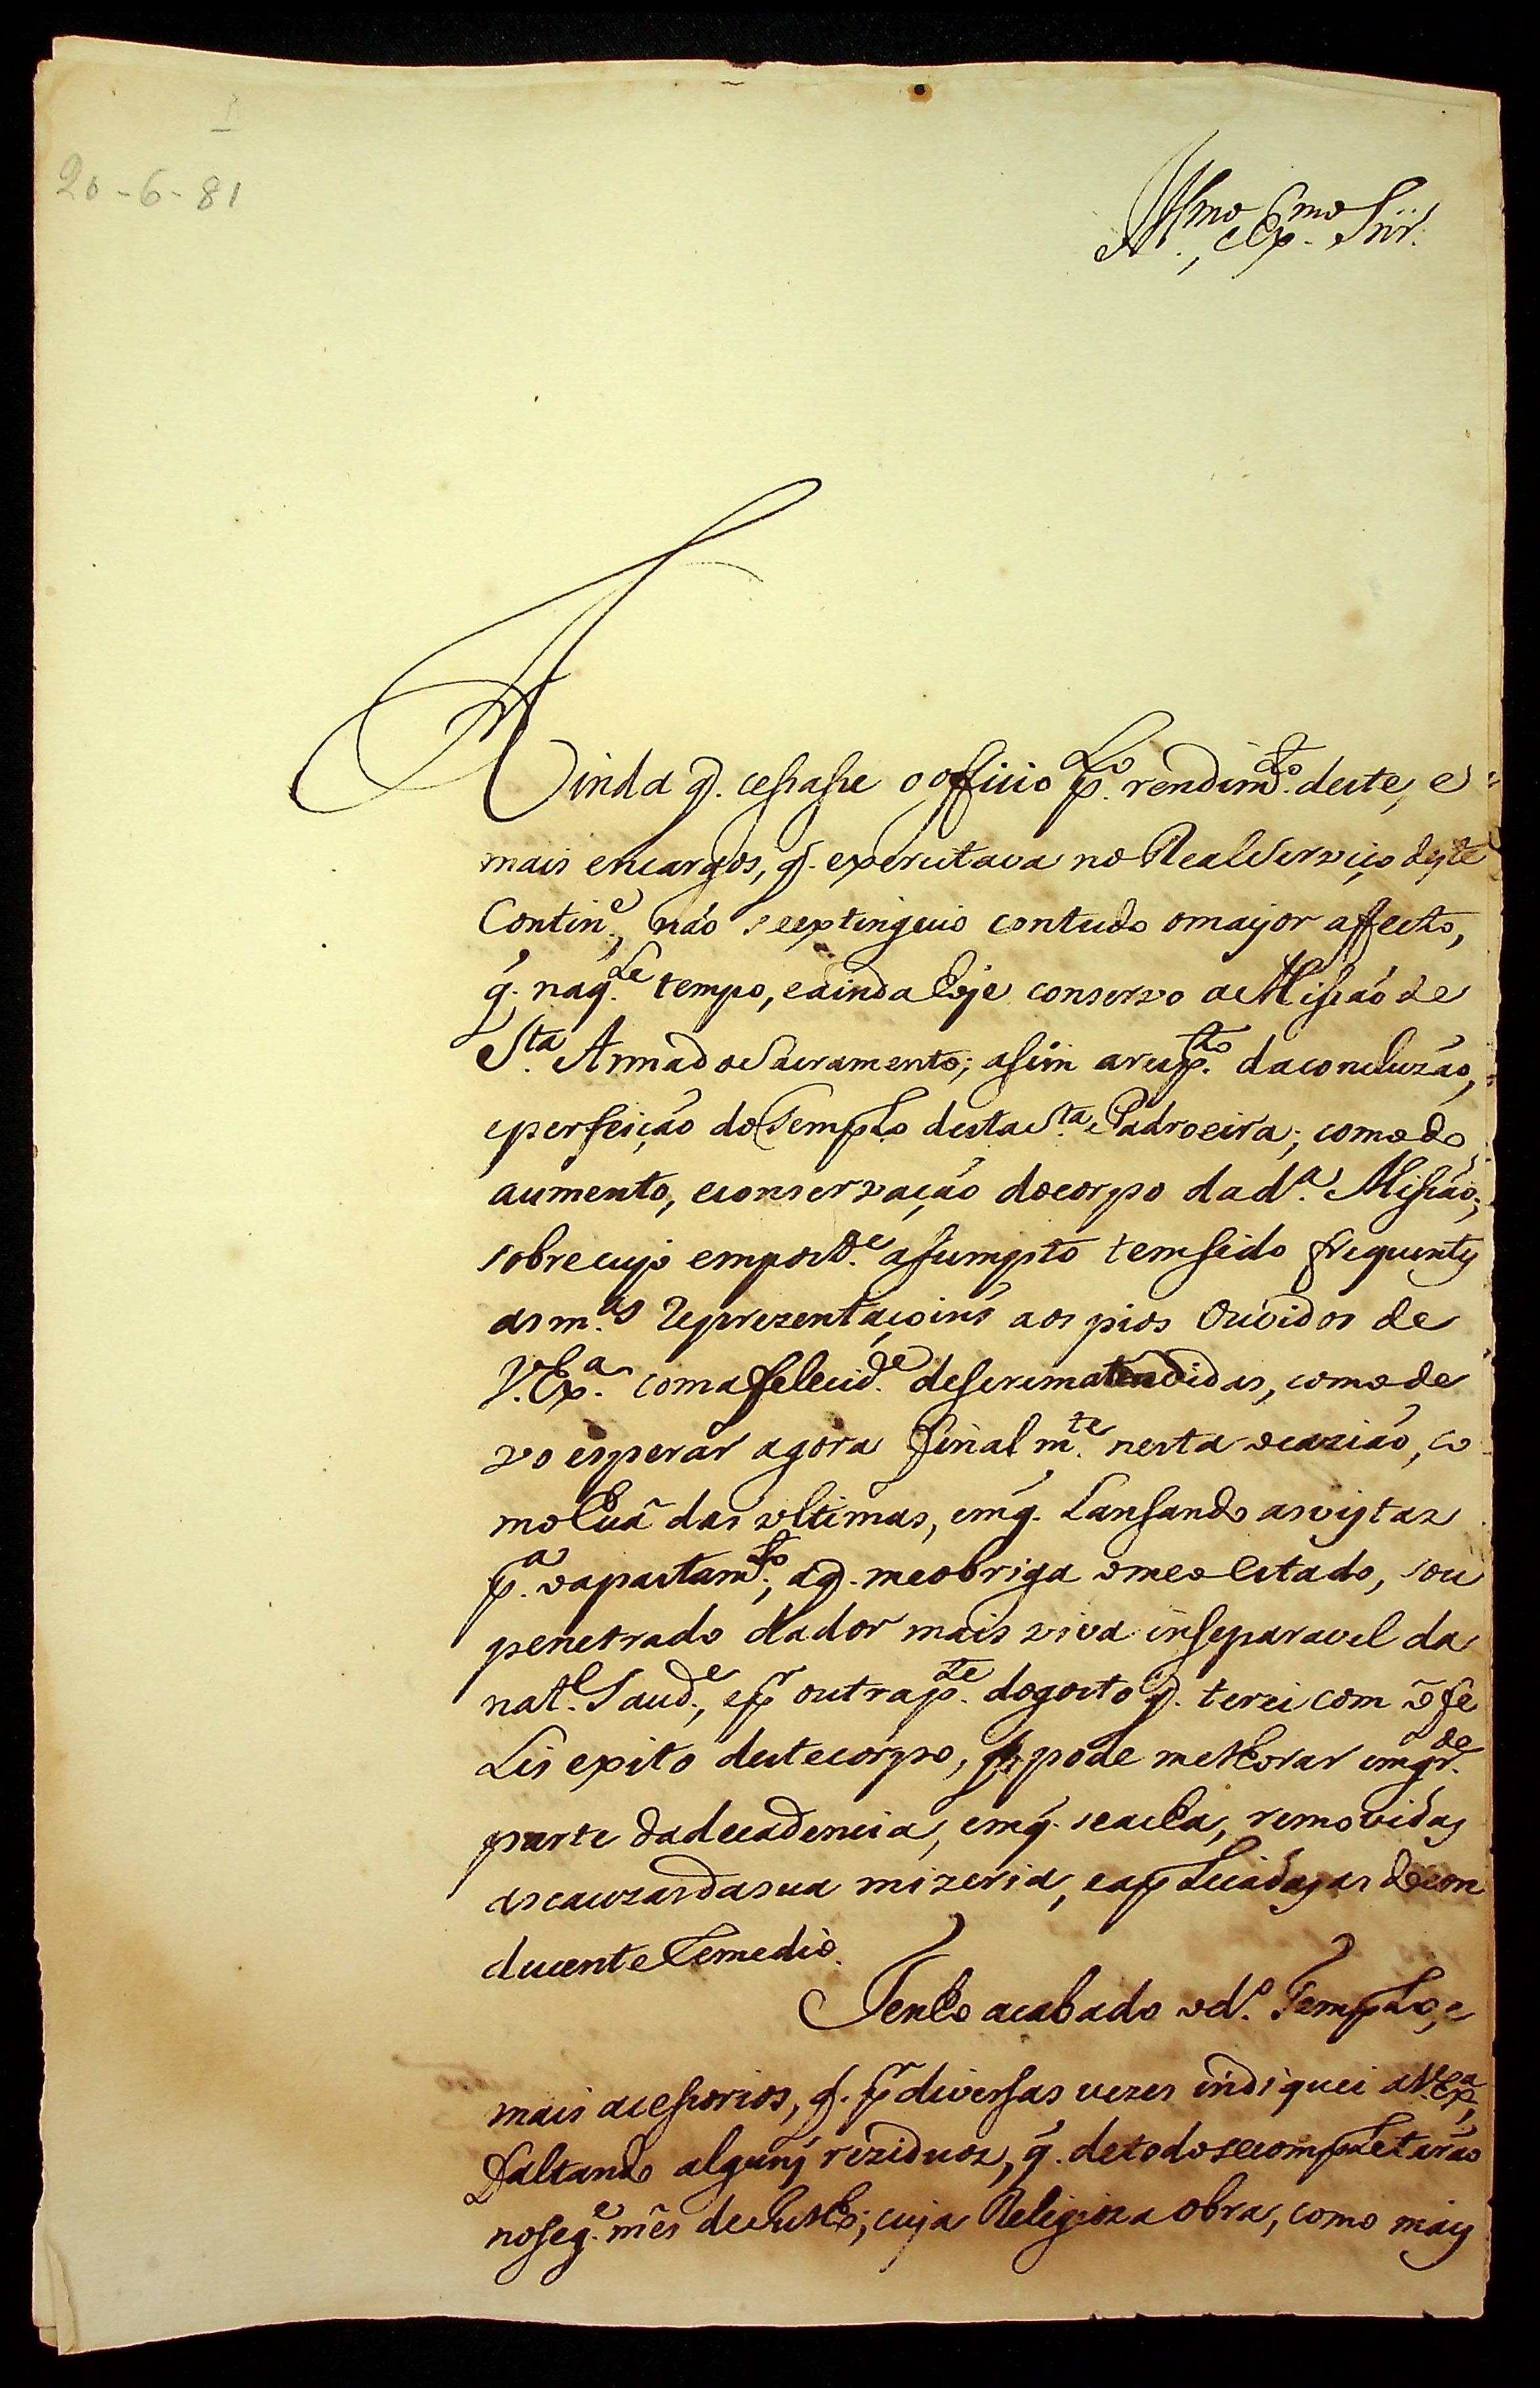 1
20-6-81
Illmo., e Exmo. Snr.
Ainda q. cessasse o officio plo. rendimto. deste, e
mais encargos, q. exercitava no Real Serviço deste
Contine., não se extinguio contudo o mayor affecto,
q. naqle. tempo, e ainda hoje conservo a Missão de
Sta. Anna do Sacramento; assim a respto. da concluzão,
e perfeição do Templo desta Sta. Padroeira; como do
aumento, e conservação do corpo da da. Missão;
sobre cujo emporte. assumpto tem sido frequentes
as mas. reprezentaçoins aos pios Ouvidos de
V. Exa. com a felecide. de serem atendidas, como de
vo esperar agora finalmte. nesta ocazião, co
mo huã das ultimas, em q. Lansando as vistas
pa. o apartamto., a q. me obriga o meo estado, sou
penetrado da dor mais viva inseparavel da
natl. Saude., e pr outra pte. do gosto q. terei com o fe
Lis exito deste corpo, q pode melhorar em grde.
parte da decadencia, em q. se acha, removidas
as cauzas da sua mizeria, e aplicadas as de con
ducente remedio.
Tenho acabado o do. Templo, e
mais acessorios, q. pr diversas vezes indiquei a V. Exa,
Faltando alguns reziduos, q. de todo se completarão
no sege. mês de Julho; cuja Religioza obra, como mais